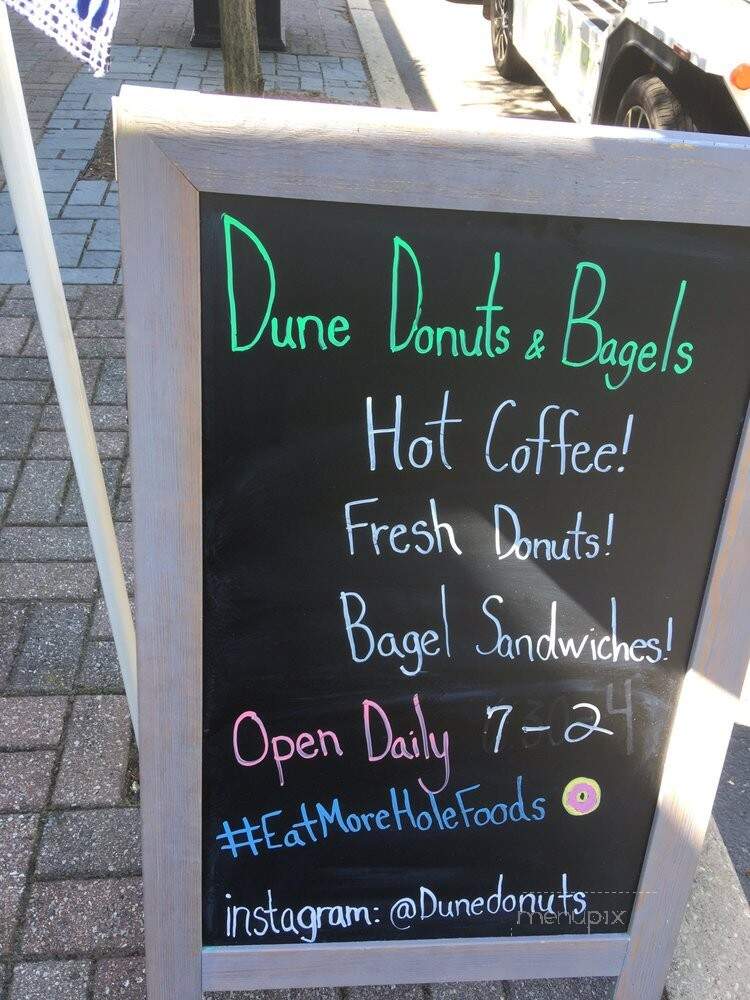 Dune Donuts & Bagels
Hot Coffee!
Fresh Donuts!
Bagel Sandwiches!
Open Daily 7-2
#EatMoreHoleFoods
instagram: @Dunedonuts
menupix